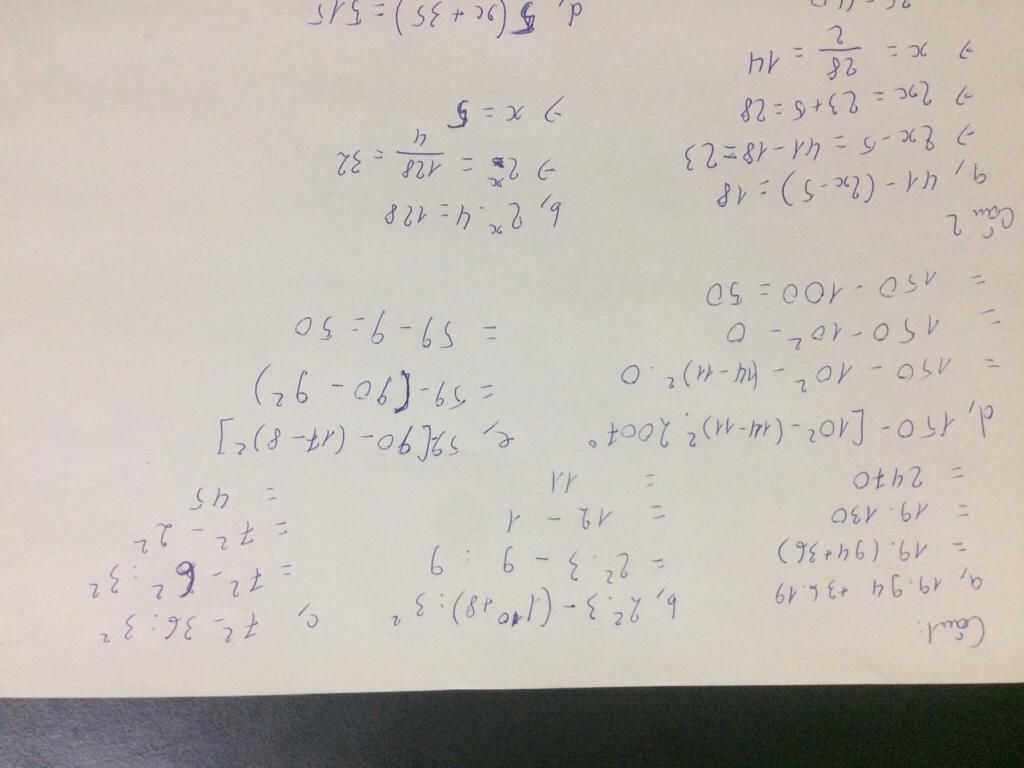 Câu1:
a, 19.94 + 36.19
= 19.(94+36)
= 19.130
= 2470
b, 2².3 - (1¹⁰+8):3²
= 2².3 - 9 : 9
= 12 - 1
= 11
c, 7² - 36:3²
= 7² - 6² : 3²
= 7² - 2²
= 45
d, 150 - [10² - (14-11)². 2007⁰
= 150 - 10² - (14-11)². 0
= 150 - 10² - 0
= 150 - 100 = 50
e, 59[90 - (17-8)²]
= 59 - [90 - 9²)
= 59 - 9 = 50
Câu 2
a, 41 - (2x-5) = 18
=> 2x - 5 = 41 - 18 = 23
=> 2x = 23+5 = 28
=> x = 28/2 = 14
b, 2ˣ . 4 = 128
=> 2ˣ = 128/4 = 32
=> x = 5
d, 5(x + 35) = 515